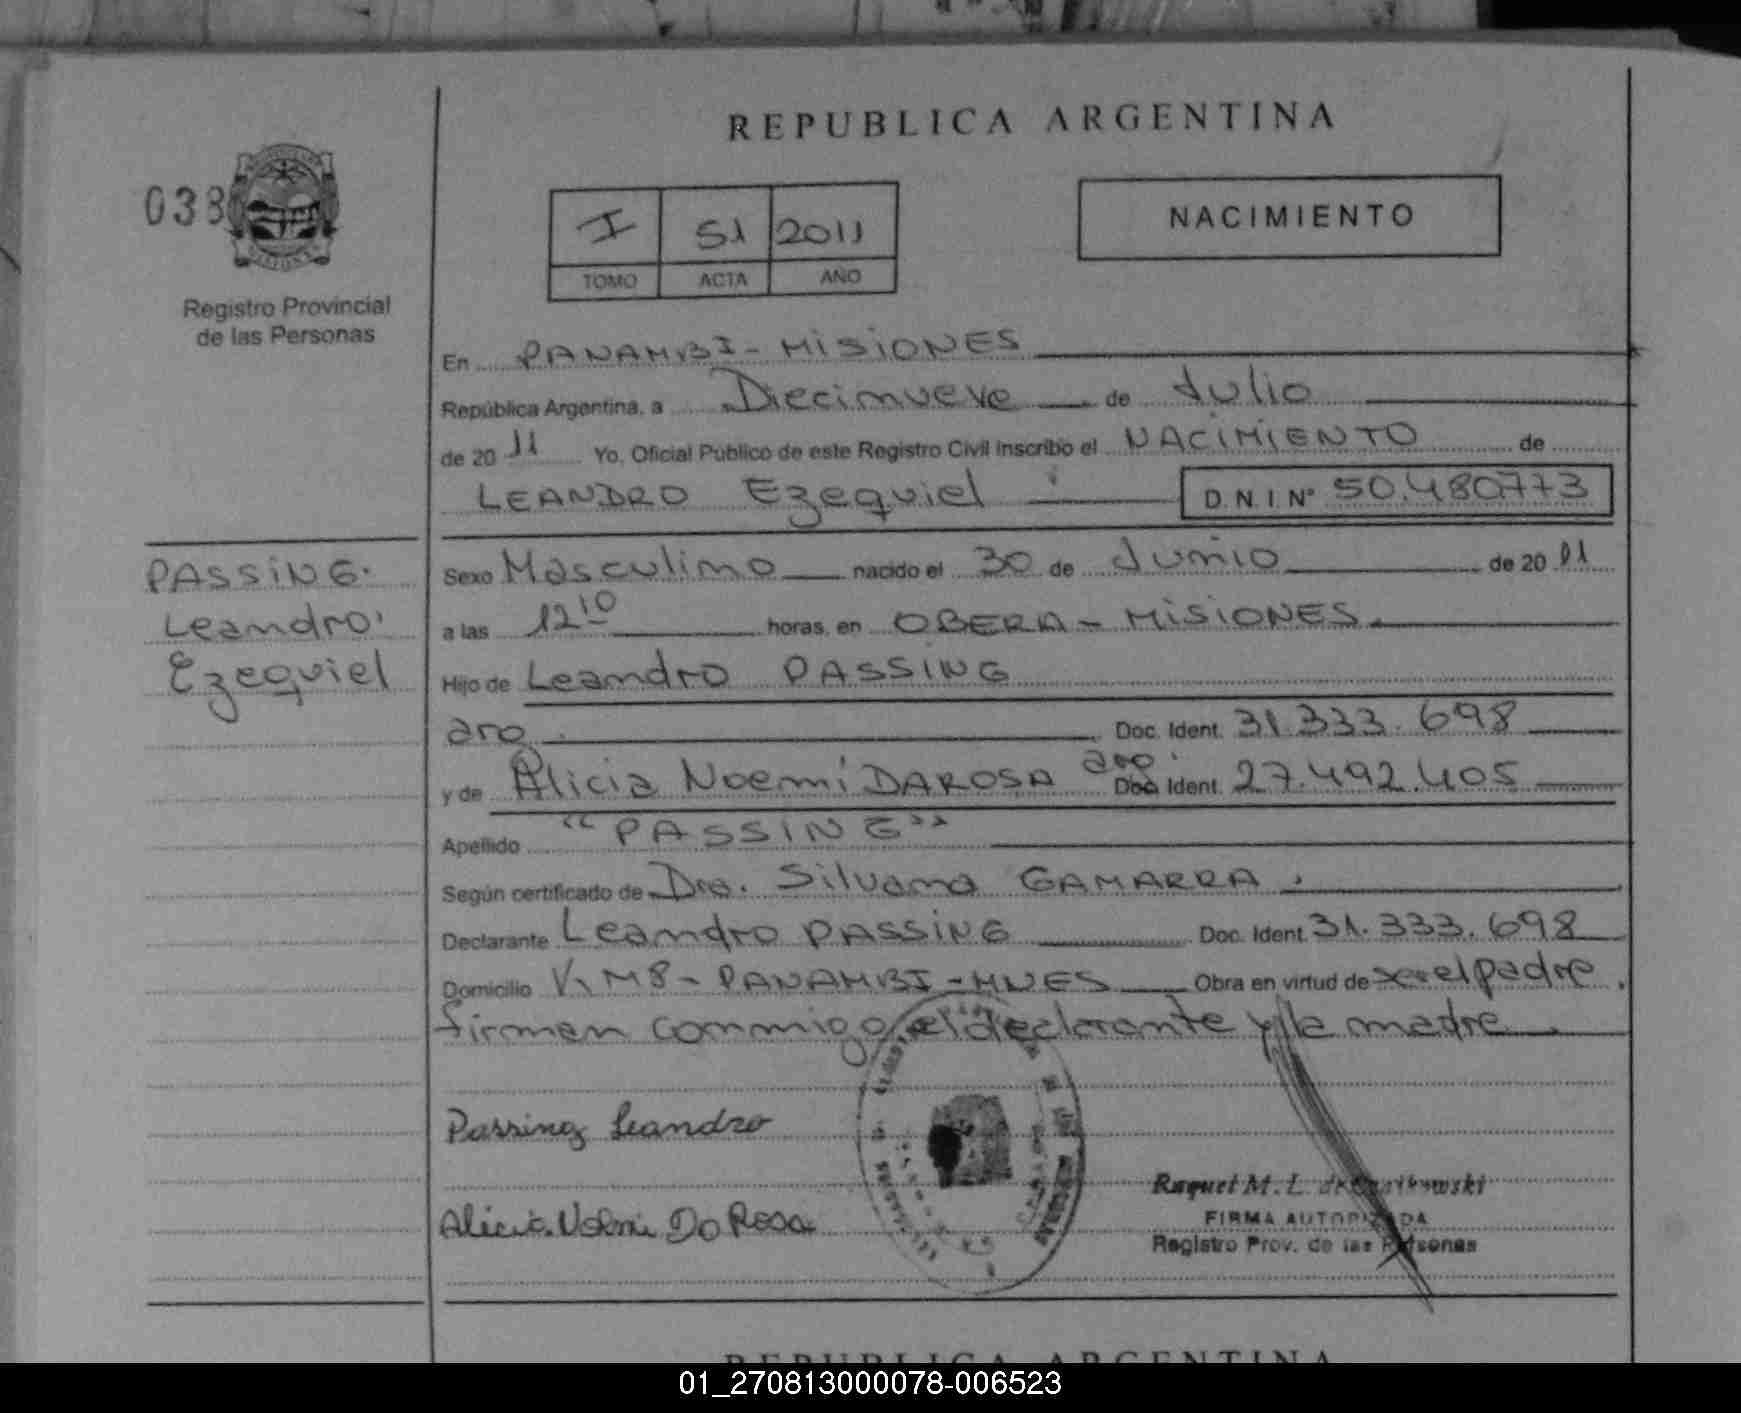 REPUBLICA ARGENTINA
038
I 51 2011
TOMO ACTA AÑO
NACIMIENTO
Registro Provincial
de las Personas
En PANAMBI - MISIONES
República Argentina, a Diecinueve de Julio
de 20 11 Yo, Oficial Público de este Registro Civil inscribo el NACIMIENTO de
LEANDRO Ezequiel D.N.I. Nº 50.480.773
PASSING.
Leandro
Ezequiel
Sexo Masculino nacido el 30 de Junio de 20 11
a las 12 10 horas, en OBERA - MISIONES.
Hijo de Leandro PASSING
arg. Doc. Ident. 31.333.698
y de Alicia Noemí DAROSA arg. Doc. Ident. 27.492.405
Apellido "PASSING"
Según certificado de Dra. Silvana GAMARRA.
Declarante Leandro PASSING Doc. Ident. 31.333.698
Domicilio Km 8 - PANAMBI - MNES Obra en virtud de ser el padre.
firman conmigo el declarante y la madre.
Passing Leandro
Raquel M. L. de
FIRMA AUTORIZADA
Alicia Noemi Da Rosa
Registro Prov. de las Personas
REPUBLICA ARGENTINA
01_270813000078-006523